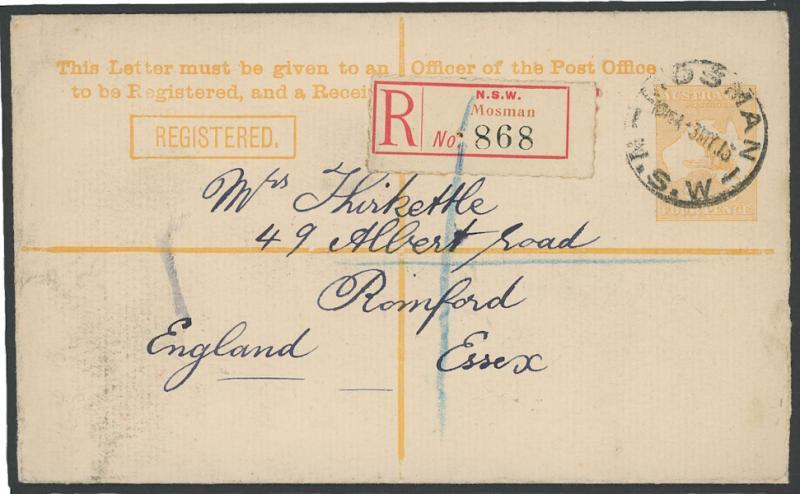 This Letter must be given to an Officer of the Post Office
to be Registered, and a Recei
REGISTERED.
R
N.S.W.
Mosman
No. 868
MOSMAN
N.S.W
FOURPENCE
Mrs Thirkettle
49 Albert road
Romford
England Essex